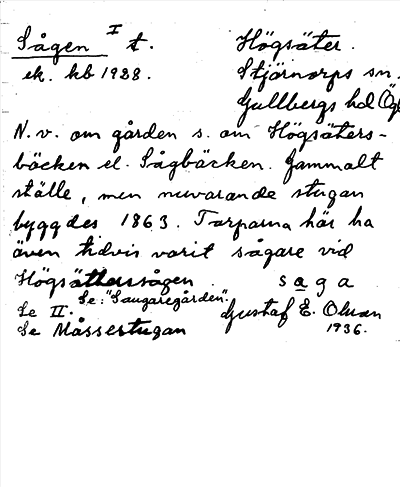 Sågen I t. Högsäter.
ek. kb 1928. Stjärnorps sn.
Gullbergs hd Ög
N.v. om gården s. om Högsäters-
bäcken el. Sågbäcken. Gammalt
ställe, men nuvarande stugan
byggdes 1863. Torparna här ha
även tidvis varit sågare vid
Högsätterssågen. saga
Se: "Saugaregården".
Se II. Gustaf E. Olson
Se Måssestugan 1936.